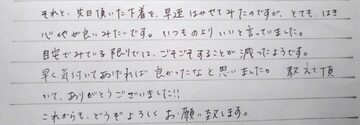 それと、先日頂いた下着を、早速はかせてみたのですが、とても、はき
心地が良いみたいです。いつものよりいいと言っていました。
自宅でみている限りでは、ごそごそすることが減ったようです。
早く気付いてあげれば良かったなと思いました。教えて頂
いて、ありがとうございました!!
これからも、どうぞよろしくお願い致します。